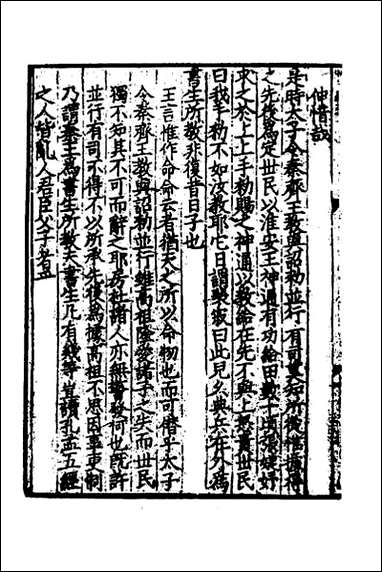 仲惜哉
是時太子令秦齊王教與詔勑並行有司莫知所從惟據得
之先後爲定世民以淮安王神通有功給田數十頃張婕妤
求之於上上手勑賜之神通以教給在先不與上怒責世民
曰我手勑不如汝教耶它日謂裴寂曰此兒久典兵在外爲
書生所教非復昔日子也
王言惟作命命云者猶天之所以命物也而可僭乎太子
令秦齊王教與詔勑並行雖高祖隆愛諸子之失而世民
獨不知其不可而辭之耶房杜諸人亦無警發何也既許
並行有司不得不以所承先後爲據高祖不思因事更制
乃謂秦王爲書生所教夫書生凡有幾等皆讀孔孟五經
之人皆亂人君臣父子者